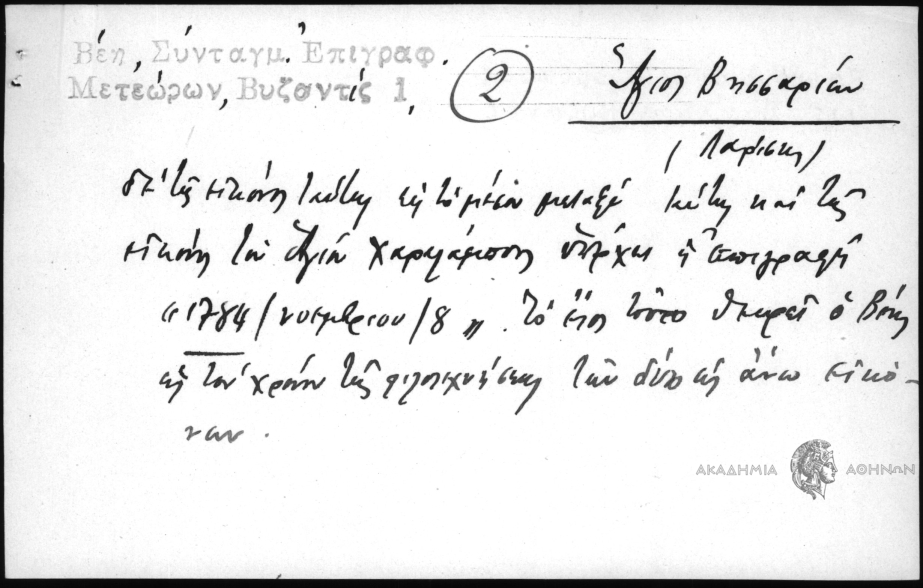 Βέη, Σύνταγμ. Επιγραφ.
Μετεώρων, Βυζαντίς 1,
2
Ἅγιος Βησσαρίων
(Λαρίσης)
τῆς εἰκόνος ταύτης εἰς τὸ μέσον μεταξὺ ταύτης καὶ τῆς
εἰκόνος τοῦ Ἁγίου Χαραλάμπους ὑπάρχει ἡ ἐπιγραφὴ
"1784/νοεμβριου/8". Τὸ ἔτος τοῦτο θεωρεῖ ὁ Βέης
ὡς τὸν χρόνον τῆς φιλοτεχνήσεως τῶν δύο ὡς ἄνω εἰκό-
νων.
ΑΚΑΔΗΜΙΑ ΑΘΗΝΩΝ